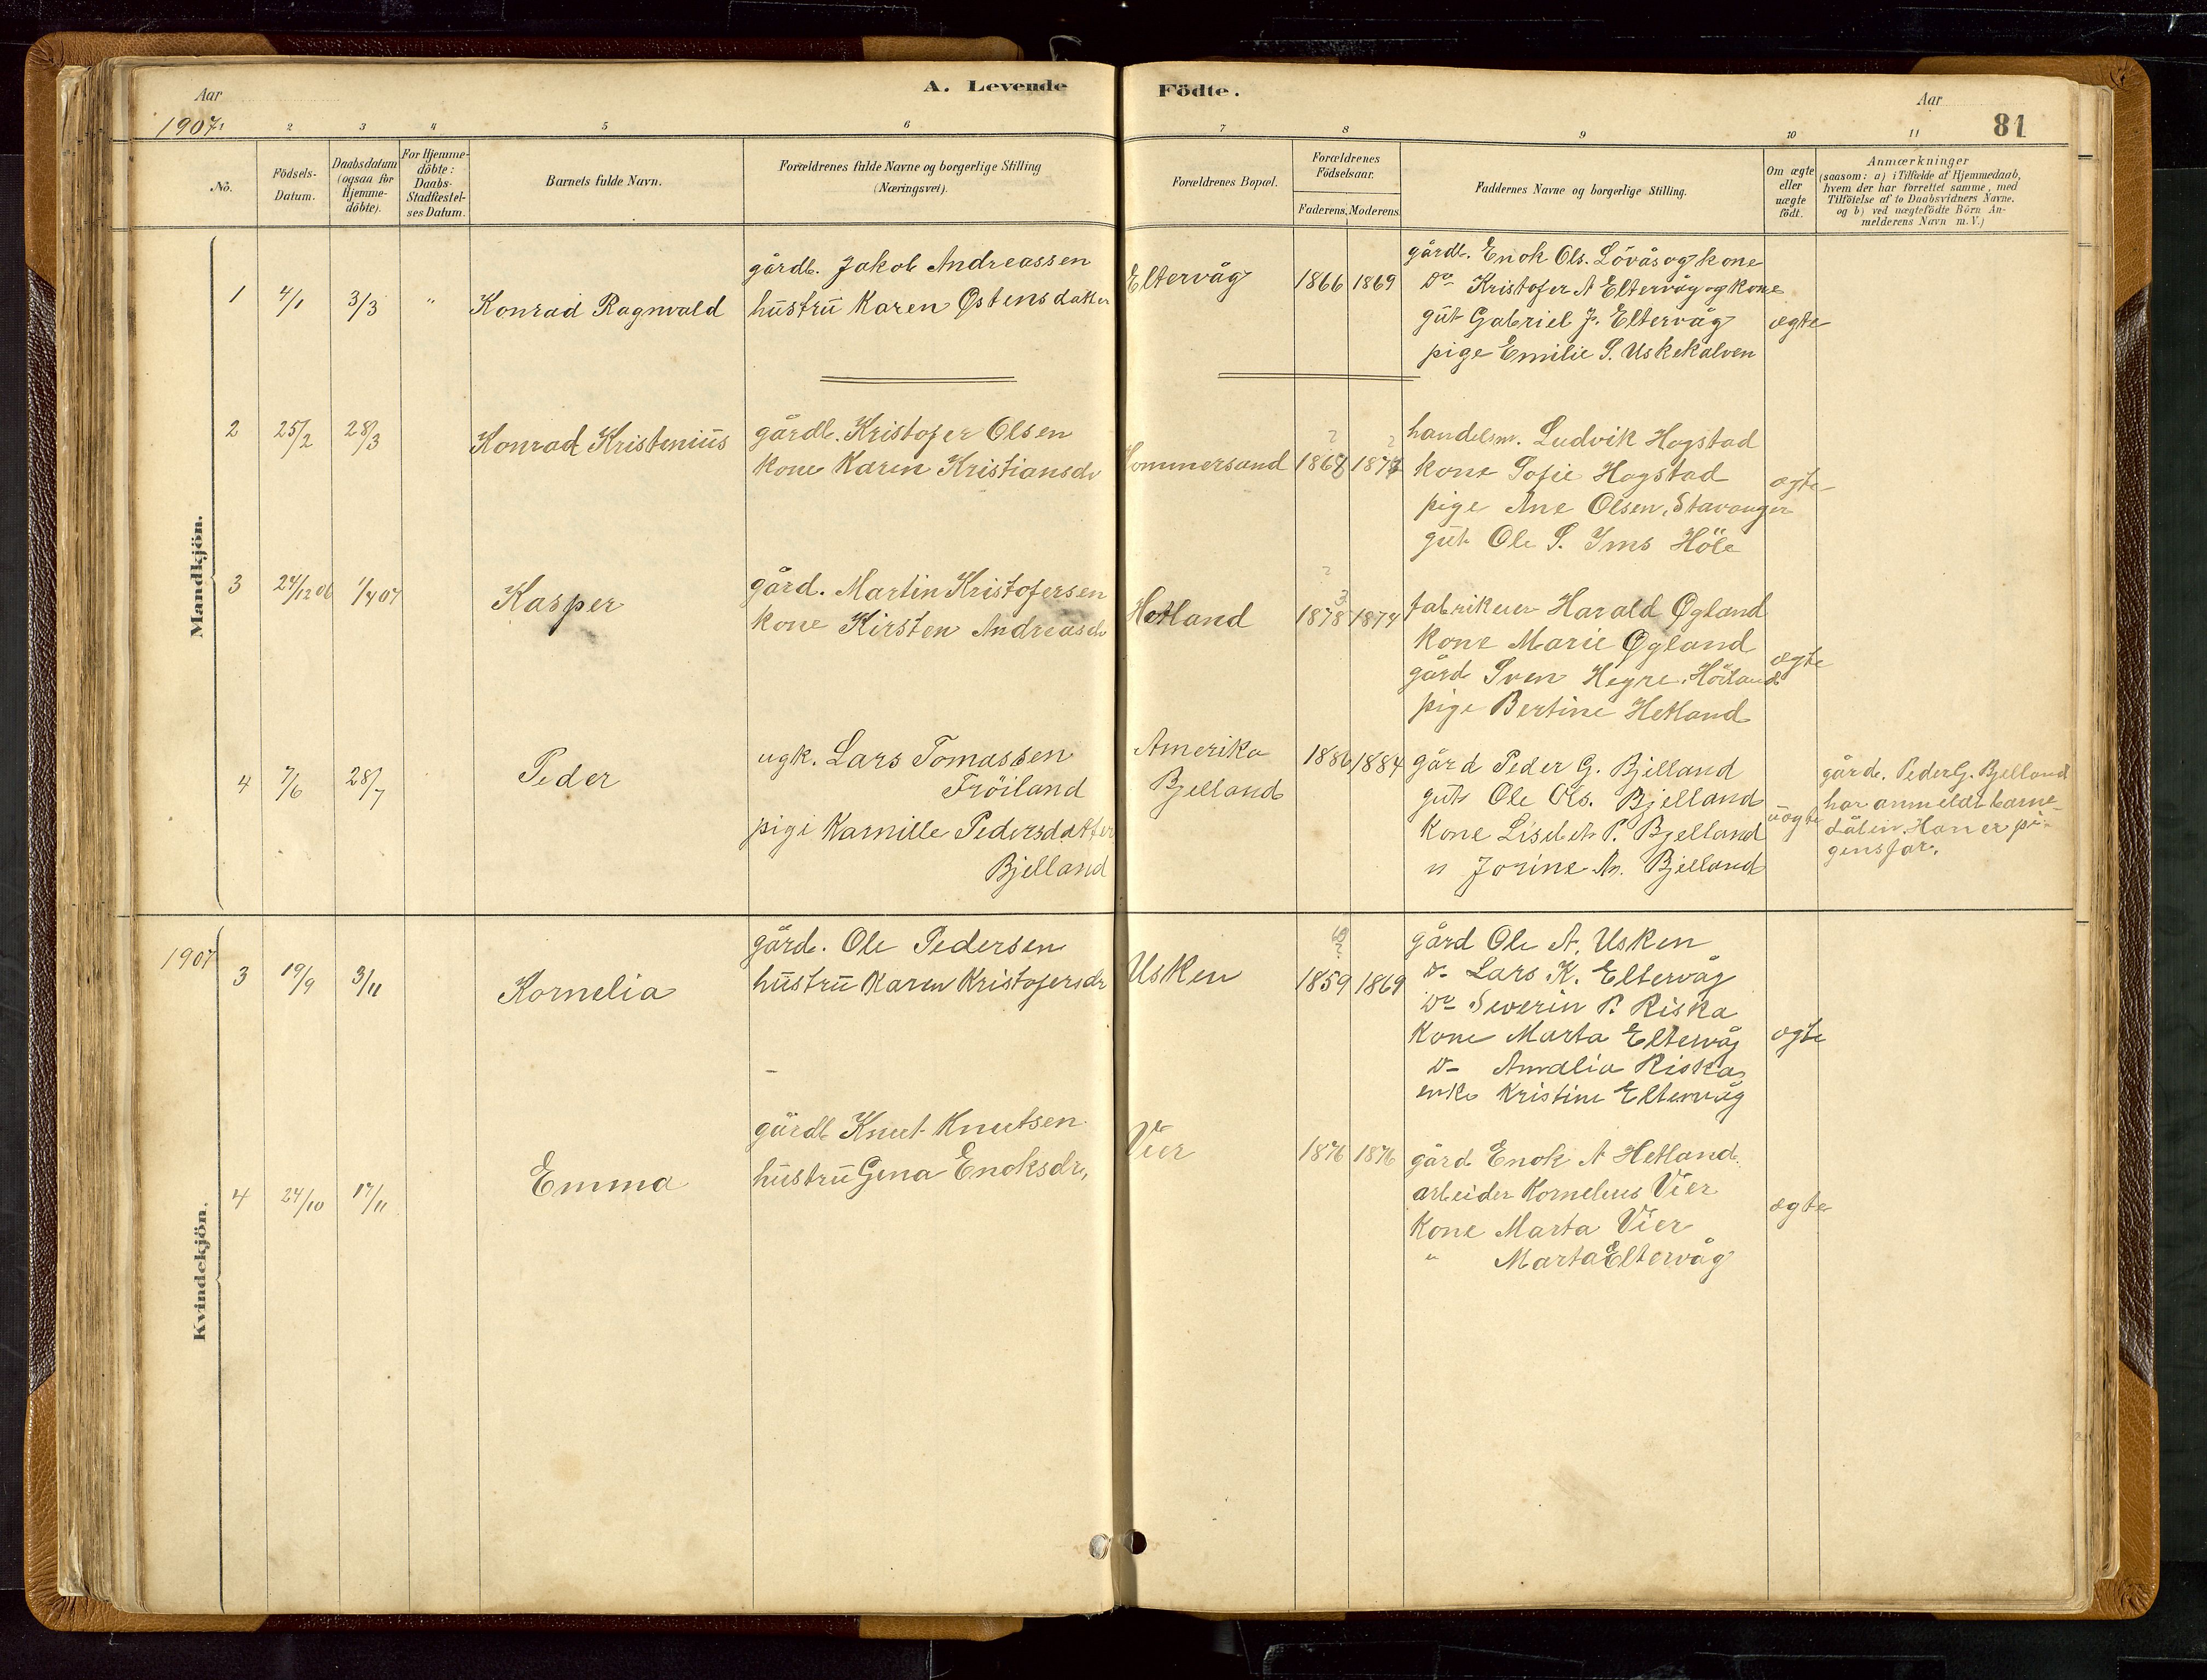 A. Levende Födte.
Aar
1907.
Aar
81
2 3 4 5 6 7 8 9 10 11
No.
Födsels-
Datum.
Daabsdatum
(ogsaa for
Hjemme-
döbte).
For Hjemme-
döbte:
Daabs-
Stadfæstel-
ses Datum.
Barnets fulde Navn.
Forældrenes fulde Navne og borgerlige Stilling
(Næringsvei).
Forældrenes Bopæl.
Forældrenes
Födselsaar.
Faderens. Moderens.
Faddernes Navne og borgerlige Stilling.
Om ægte
eller
uægte
födt.
Anmærkninger
(saasom: a) i Tilfælde af Hjemmedaab,
hvem der har forrettet samme, med
Tilföielse af to Daabsvidners Navne.
og b) ved uægtefödte Börn An-
melderens Navn m.V.)
Mandkjön.
1 4/1 3/3 " Konrad Ragnvald
gårdb. Jakob Andreassen
hustru Karen Østensdatter
Eltervåg 1866 1869
gårdb. Enok Ols. Lövås og kone
Do Kristofer A Eltervåg og kone
gut Gabriel J. Eltervåg
pige Emilie S. Uskekalven
ægte
2 25/2 28/3 Konrad Kristenius
gårdb. Kristofer Olsen
kone Karen Kristiansdr
Hommersand 1868 1877
handelsm. Ludvik Hogstad
kone Sofie Hogstad
pige Ane Olsen, Stavanger
gut Ole S. Ims Höle
ægte
3 24/12 06 1/4 07 Kasper
gård. Martin Kristofersen
kone Kirsten Andreasdr
Hetland 1878 1874
fabrikeier Harald Øgland
kone Marie Øgland
gård Sven Hegre, Höiland
pige Bertine Hetland
ægte
4 7/6 28/7 Peder
ugk. Lars Tomassen
Fröiland
pige Kamille Pedersdatter
Bjelland
Amerika
Bjelland
1886 1884
gård Peder G. Bjelland
gut Ole Ols. Bjelland
kone Lisebet P. Bjelland
" Jorine M. Bjelland
uægte
gård. Peder G. Bjelland
har anmeldt barne-
dåben. Han er pi-
gens far.
Kvindekjön.
1907
3 19/9 3/11 Kornelia
gård. Ole Pedersen
hustru Karen Kristofersdr
Usken 1859 1869
gård Ole A. Usken
Do Lars K. Eltervåg
Do Severin P. Riska
kone Marta Eltervåg
Do Amalia Riska
enke Kristine Eltervåg
ægte
4 24/10 17/11 Emma
gårdb Knut Knutsen
hustru Gina Enoksdr,
Vier 1876 1876
gård Enok A Hetland
arbeider Kornelius Vier
kone Marta Vier
" Marta Eltervåg
ægte